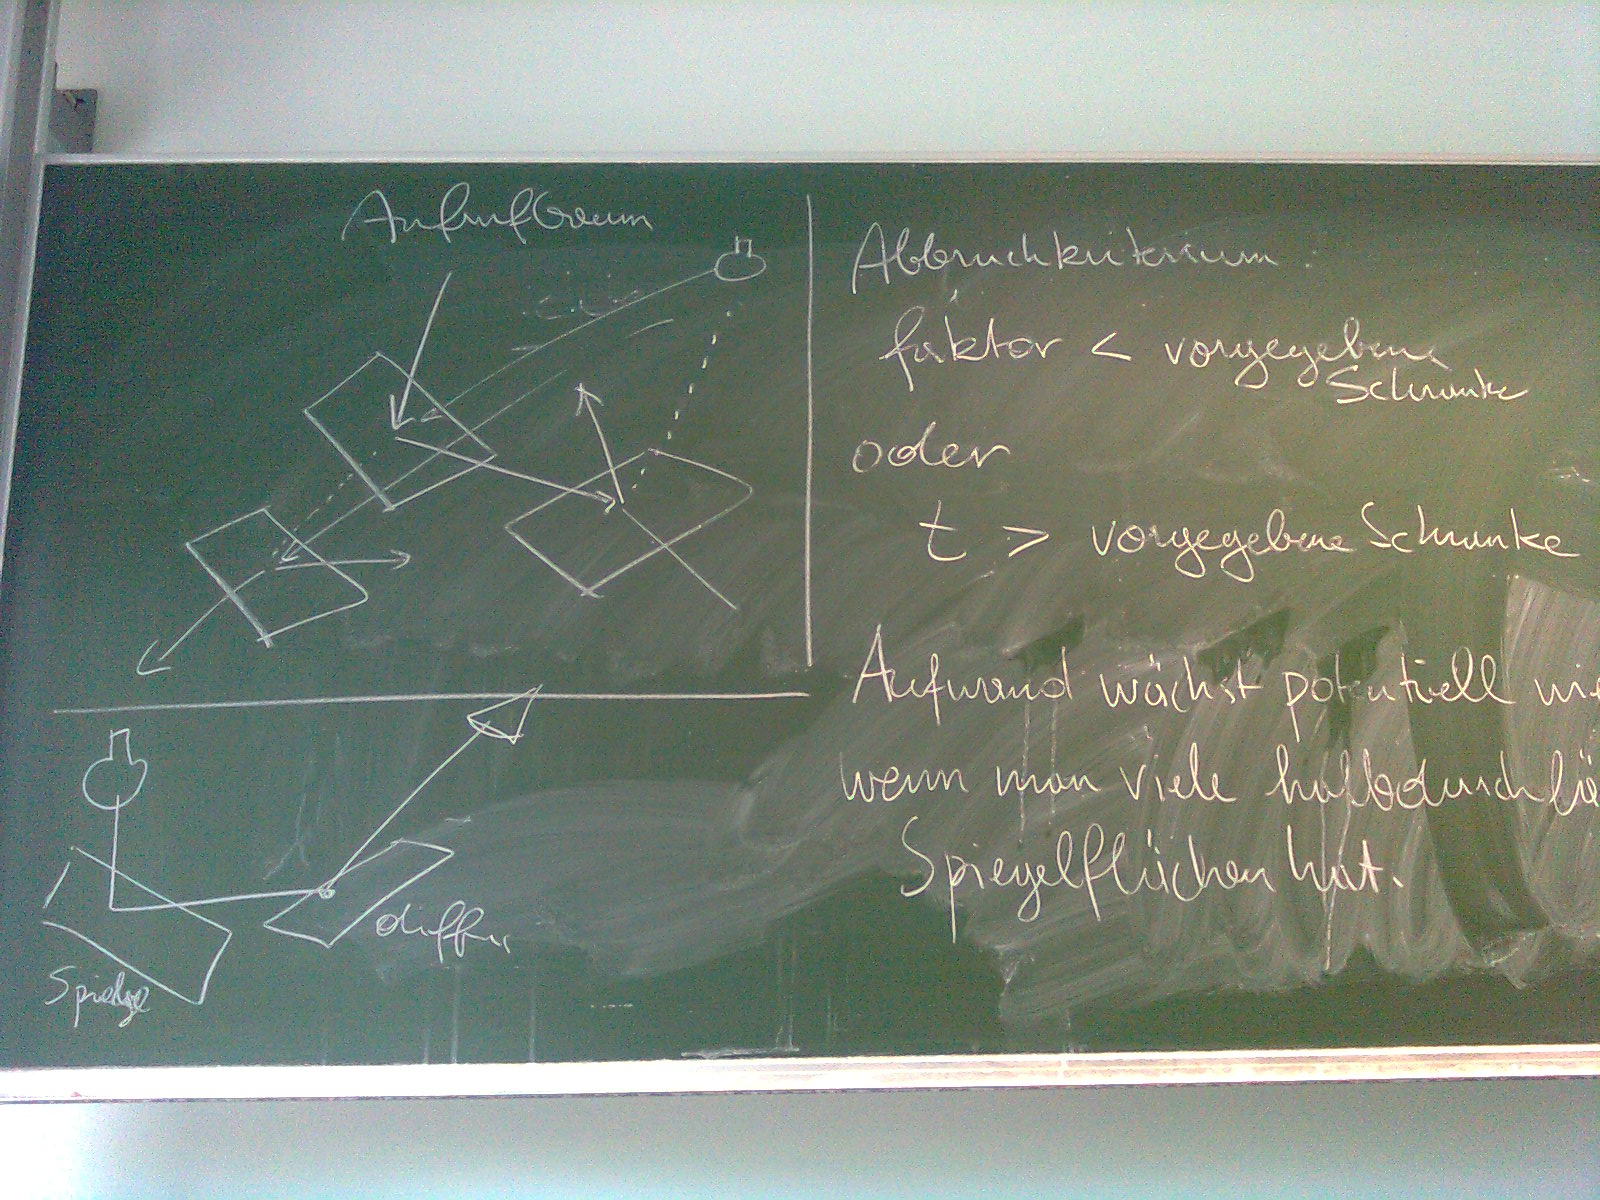 Aufrufbaum
Abbruchkriterium:
faktor < vorgegebene
Schranke
oder
t > vorgegebene Schranke
Aufwand wächst potentiell wie
wenn man viele halbdurchlä
Spiegelflächen hat.
diffus
Spiegel